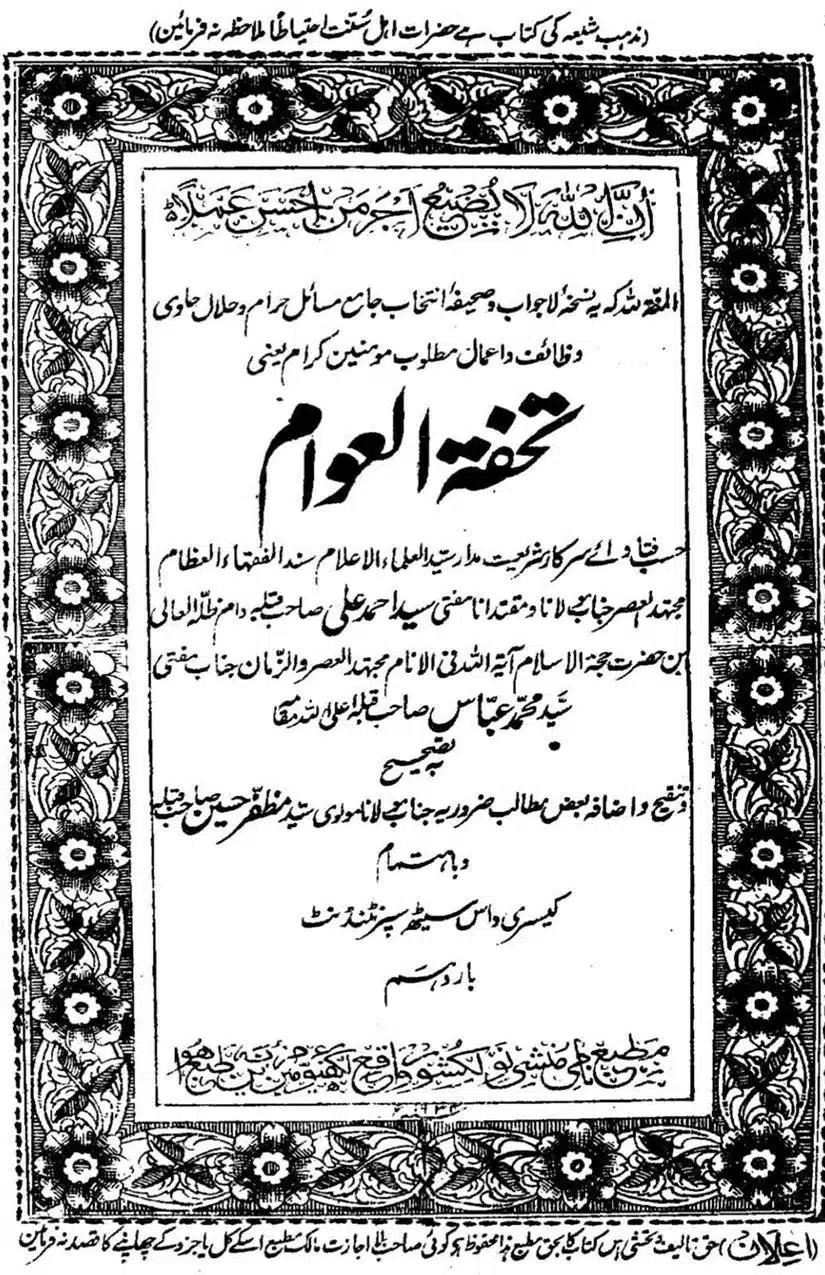 (مذہب شیعہ کی کتاب ہے حضرات اہل سُنّت احتیاطاً ملاحظہ نہ فرمائین)
اِنَّ اللّٰهَ لَا یُضِیْعُ اَجْرَ مَنْ اَحْسَنَ عَمَلًا
المنّۃ للہ کہ یہ نسخۂ لاجواب و صحیفۂ انتخاب جامع مسائل حرام و حلال حاوی
وظائف و اعمال مطلوب مومنین کرام یعنی
تحفۃ العوام
حسب فتاوائے سرکار شریعت مدار سیّد العلماء الاعلام سند الفقہاء العظام
مجتہد العصر جناب مولانا و مقتدانا مفتی سید احمد علی صاحب قبلہ دام ظلّہ العالی
ابن حضرت حجۃ الاسلام آیۃ اللہ فی الانام مجتہد العصر والزّمان جناب مفتی
سیّد محمّد عبّاس صاحب قبلہ اعلیٰ اللہ مقامہ
بہ تصحیح
و تنقیح و اضافہ بعض مطالب ضروریہ جناب مولانا مولوی سیّد مظفّر حسین صاحب قبلہ
و باہتمام
کیسری داس سیٹھ سپرنٹنڈنٹ
بار دہم
مطبع نامی منشی نولکشور واقع لکھنؤ مین بزیّن طبع ہوا
(اعلان) حق تالیف و تحشی اس کتاب کا بحق مطبع ہذا محفوظ ہے کوئی صاحب بلا اجازت مالک مطبع اسکے کل یا جزو کے چھاپنے کا قصد نہ فرماین